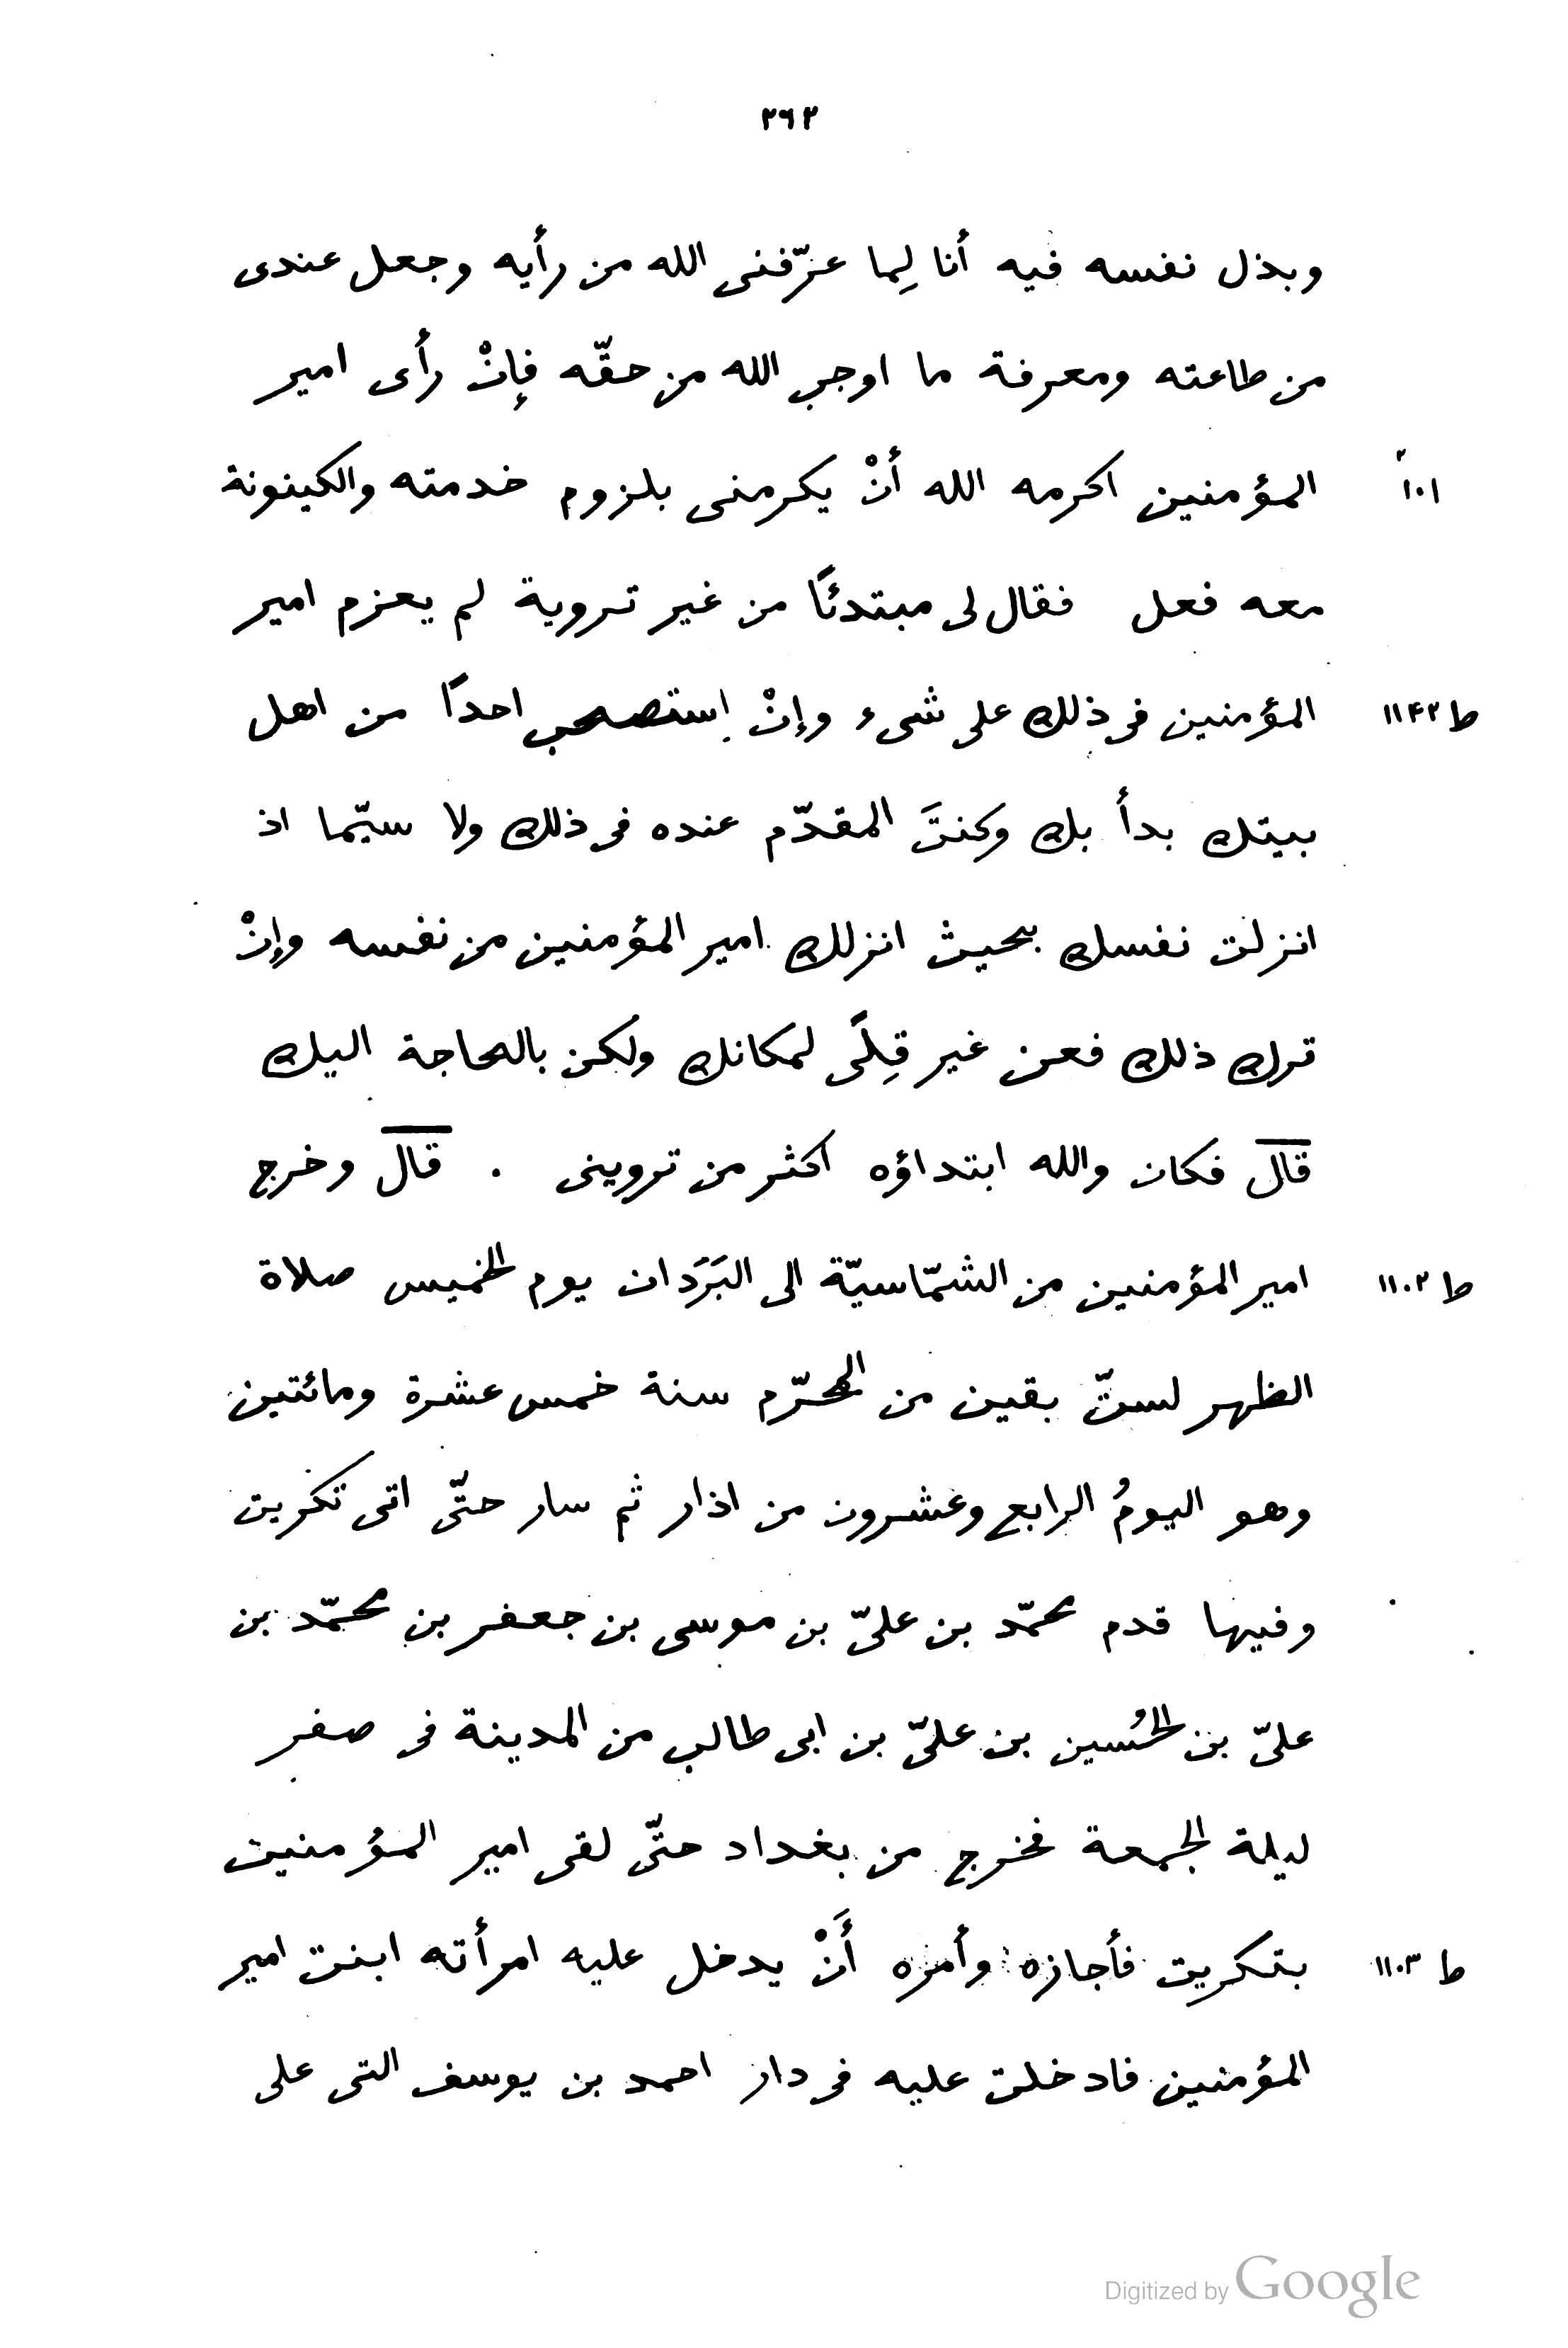 ٢٦٢
وبذل نفسه فيه أنا لِما عرّفنى الله من رأيه وجعل عندى
من طاعته ومعرفة ما اوجب الله من حقّه فإنْ رأى امير
المؤمنين اكرمه الله أنْ يكرمنى بلزوم خدمته والكينونة
معه فعل فقال لى مبتدئًا من غير تروية لم يعزم امير
المؤمنين فى ذلك على شىء وإنْ إستصحب احدًا من اهل ط ١١٤٢
بيتك بدأ بك وكنتَ المقدّم عنده فى ذلك ولا سيّما اذ
انزلت نفسك بحيث انزلك امير المؤمنين من نفسه وإنْ
ترك ذلك فعن غير قِلًى لمكانك ولكن بالحاجة اليك
قال فكان والله ابتداؤه اكثر من تروينى . قال وخرج
امير المؤمنين من الشمّاسيّة الى البَرَدان يوم الخميس صلاة ط ١١٠٢
الظهر لستّ بقين من المحرّم سنة خمس عشرة ومائتين
وهو اليومُ الرابع وعشرون من اذار ثم سار حتّى اتى تكريت
وفيها قدم محمّد بن علىّ بن موسى بن جعفر بن محمّد بن
علىّ بن الحُسين بن علىّ بن ابى طالب من المدينة فى صفر
ليلة الجمعة فخرج من بغداد حتّى لقى امير المؤمنين
بتكريت فأجازه وأمره أَنْ يدخل عليه امرأته ابنت امير ط ١١٠٣
المؤمنين فادخلت عليه فى دار احمد بن يوسف التى على
Digitized by Google